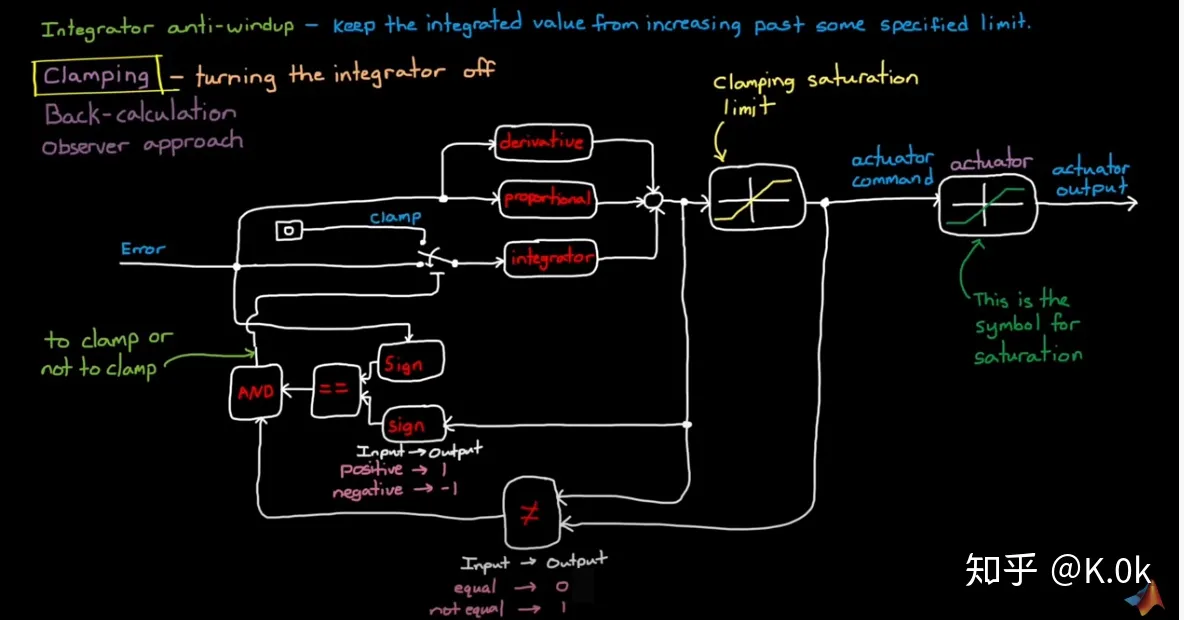 Integrator anti-windup – keep the integrated value from increasing past some specified limit.
Clamping – turning the integrator off
Back-calculation
observer approach
Clamping saturation
limit
derivative
proportional
integrator
clamp
0
Error
actuator
command
actuator
actuator
output
This is the
symbol for
saturation
to clamp or
not to clamp
AND
==
Sign
sign
Input → Output
positive → 1
negative → -1
≠
Input → Output
equal → 0
not equal → 1
知乎 @K.0k